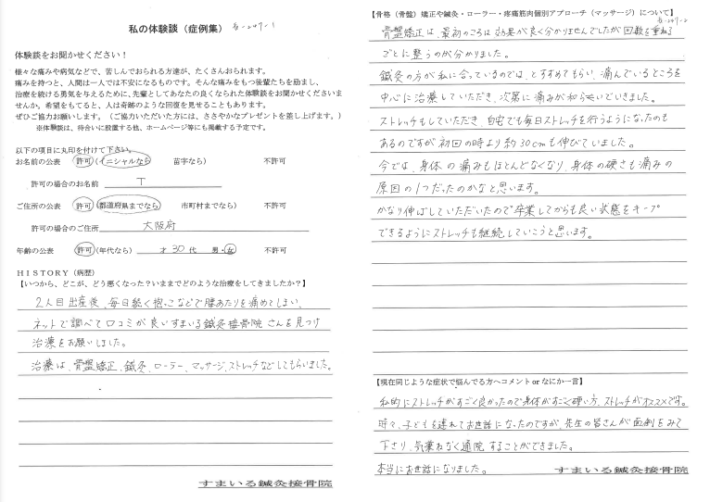 私の体験談（症例集）
体験談をお聞かせください！
様々な痛みや病気などで、苦しんでおられる方達が、たくさんおられます。
痛みを持つと、人間は一人では不安になるものです。そんな痛みをもつ後輩たちを励まし、
治療を続ける勇気を与えるために、先輩としてあなたの良くなられた体験談をお聞かせくださいま
せんか。希望をもてると、人は奇跡のような回復を見せることもあります。
ぜひご協力お願いします。（ご協力いただいた方には、ささやかなプレゼントを差し上げます。）
※体験談は、待合いに設置する他、ホームページ等にも掲載する予定です。
以下の項目に丸印を付けて下さい。
お名前の公表　許可（イニシャルなら　苗字なら）　不許可
許可の場合のお名前　T
ご住所の公表　許可（都道府県までなら　市町村までなら）　不許可
許可の場合のご住所　大阪府
年齢の公表　許可（年代なら）　才 30 代　男・女　不許可
ＨＩＳＴＯＲＹ（病歴）
【いつから、どこが、どう悪くなった？いままでどのような治療をしてきましたか？】
2人目出産後、毎日続く抱っこなどで腰あたりを痛めてしまい、
ネットで調べて口コミが良いすまいる鍼灸接骨院さんを見つけ
治療をお願いしました。
治療は、骨盤矯正、鍼灸、ローラー、マッサージ、ストレッチなどしてもらいました。
すまいる鍼灸接骨院
【骨格（骨盤）矯正や鍼灸・ローラー・疼痛筋肉個別アプローチ（マッサージ）について】
骨盤矯正は、最初のころは効果が良く分かりませんでしたが回数を重ねる
ごとに整うのが分かりました。
鍼灸の方が私に合っているのでは、とすすめてもらい、痛んでいるところを
中心に治療していただき、次第に痛みが和らいでいきました。
ストレッチもしていただき、自宅でも毎日ストレッチを行うようになったのも
あるのですが初回の時より約30cmも伸びていました。
今では、身体の痛みもほとんどなくなり、身体の硬さも痛みの
原因の1つだったのかなと思います。
かなり伸ばしていただいたので卒業してからも良い状態をキープ
できるようにストレッチも継続していこうと思います。
【現在同じような症状で悩んでる方へコメント or なにか一言】
私的にストレッチがすごく良かったので身体がすごく硬い方、ストレッチがオススメです。
時々、子どもを連れてお世話になったのですが、先生の皆さんが面倒をみて
下さり、気兼ねなく通院することができました。
本当にお世話になりました。
すまいる鍼灸接骨院